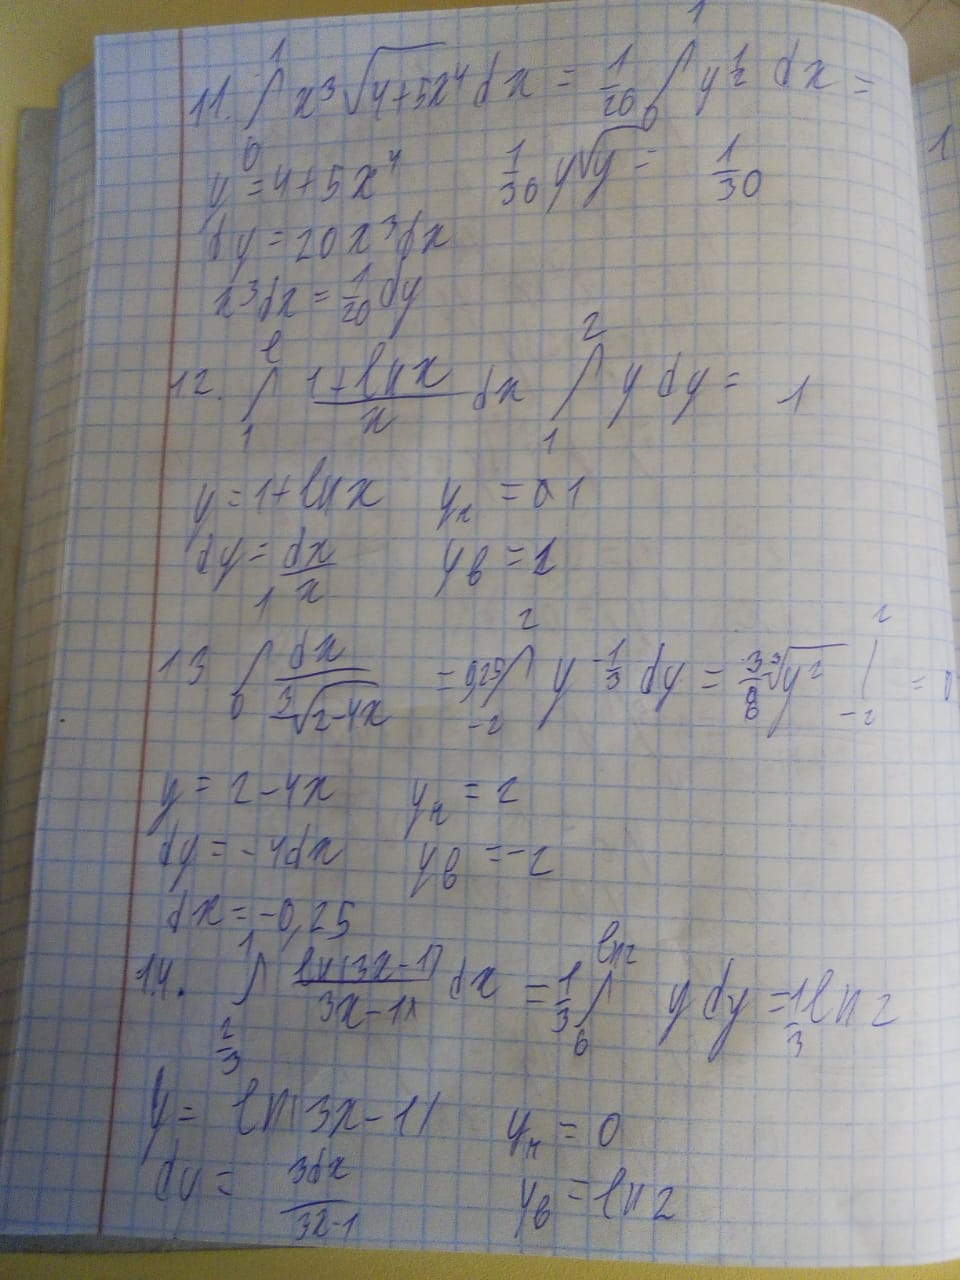 11. ∫₀¹ x³ √(4+5x⁴) dx = 1/20 ∫₀¹ y^(1/2) dx =
y = 4+5x⁴   1/30 y√y =   1/30
dy = 20x³dx
x³dx = 1/20 dy
12. ∫₁ᵉ (1+ln x)/x dx ∫₁² y dy = 1
y = 1+ln x   yн = 1
dy = dx/x   yв =
13 ∫₀¹ dx/∛(2-4x) = 0,25 ∫₋₂² y^(-1/3) dy = 3/8 ∛(y²) |₋₂² = 0
y = 2-4x   yн = 2
dy = -4dx   yв = -2
dx = -0,25
14. ∫_(2/3)^1 ln(3x-1)/(3x-1) dx = 1/3 ∫₀^(ln2) y dy = 1/3 ln 2
y = ln(3x-1)   yн = 0
dy = 3dx/(3x-1)   yв = ln 2
1